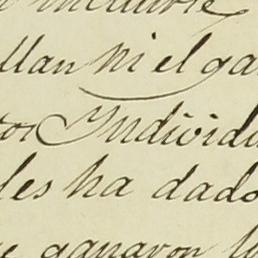 llan ni el ga
tos Individu
les ha dado
e ganaron